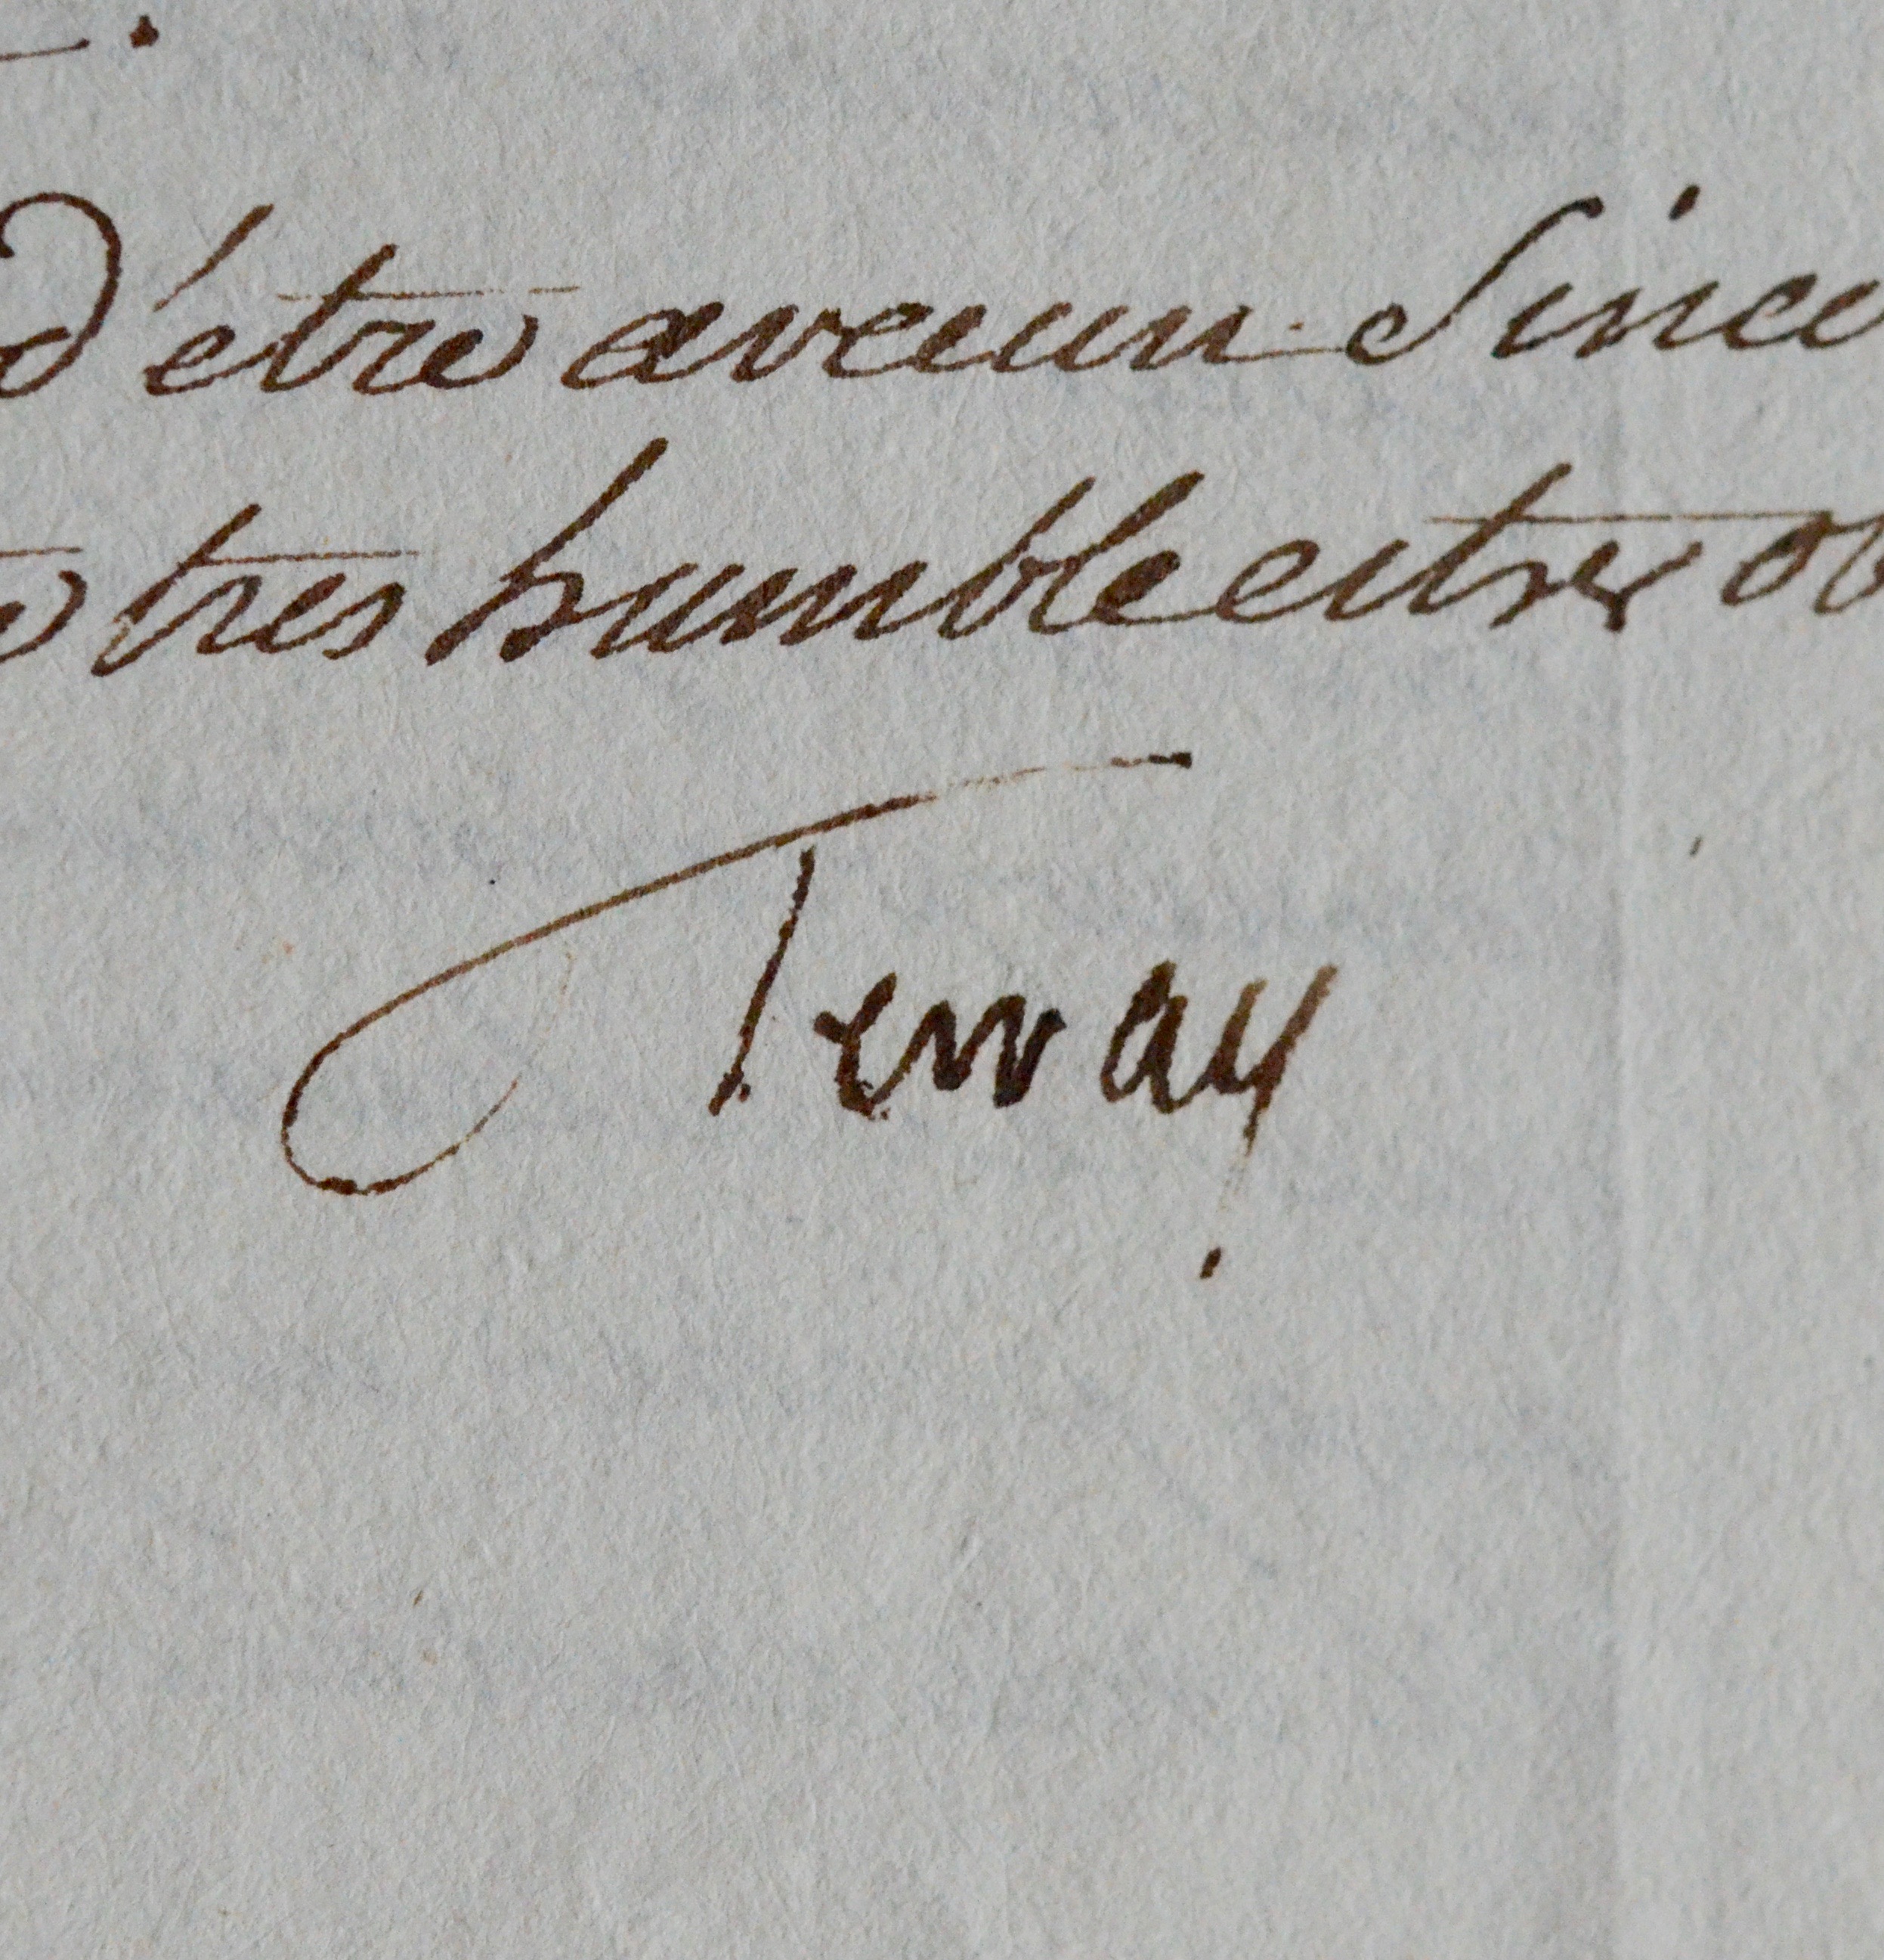 d'être avec un Since
tres humble et tres ob
Terray